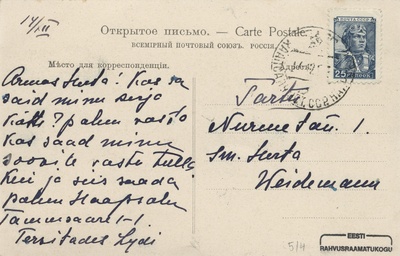 14/III
Открытое письмо. — Carte Postale.
ВСЕМІРНЫЙ ПОЧТОВЫЙ СОЮЗЪ. РОССІЯ.
Мѣсто для корреспонденціи.
Адресъ.
ПОЧТА СССР
25 КОПЕЕК
Armas Herta! Kas sa
said minu kirja
kätte? palun vasta
Kas saad minu
soovile vastu tulla
Kui ja siis saada
palun Haapsalu
Tammsaare 1-1
Tervitades Lydi
Tartu
Nurme tän. 1.
Sm. Herta
Weidemann
5/4
EESTI
RAHVUSRAAMATUKOGU